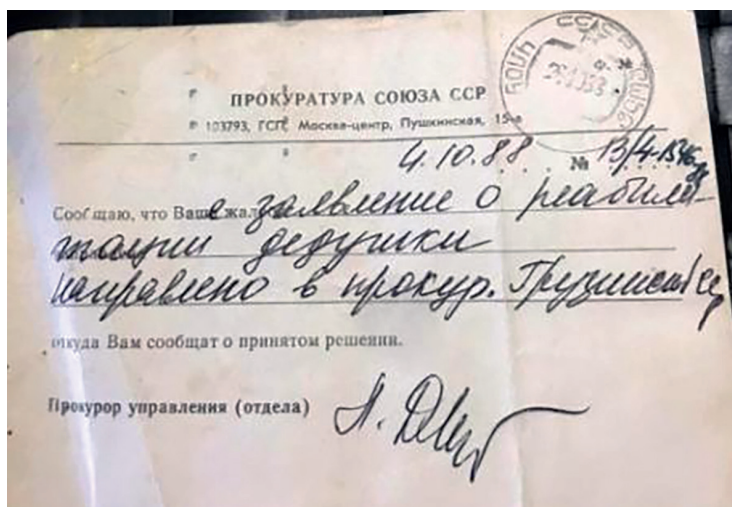 ПРОКУРАТУРА СОЮЗА ССР
103793, ГСП, Москва-центр, Пушкинская, 15-а
4.10.88 № 13/4-1546
Сообщаю, что Ваше заявление о реабили-
тации дедушки
направлено в прокур. Грузинской
откуда Вам сообщат о принятом решении.
Прокурор управления (отдела)